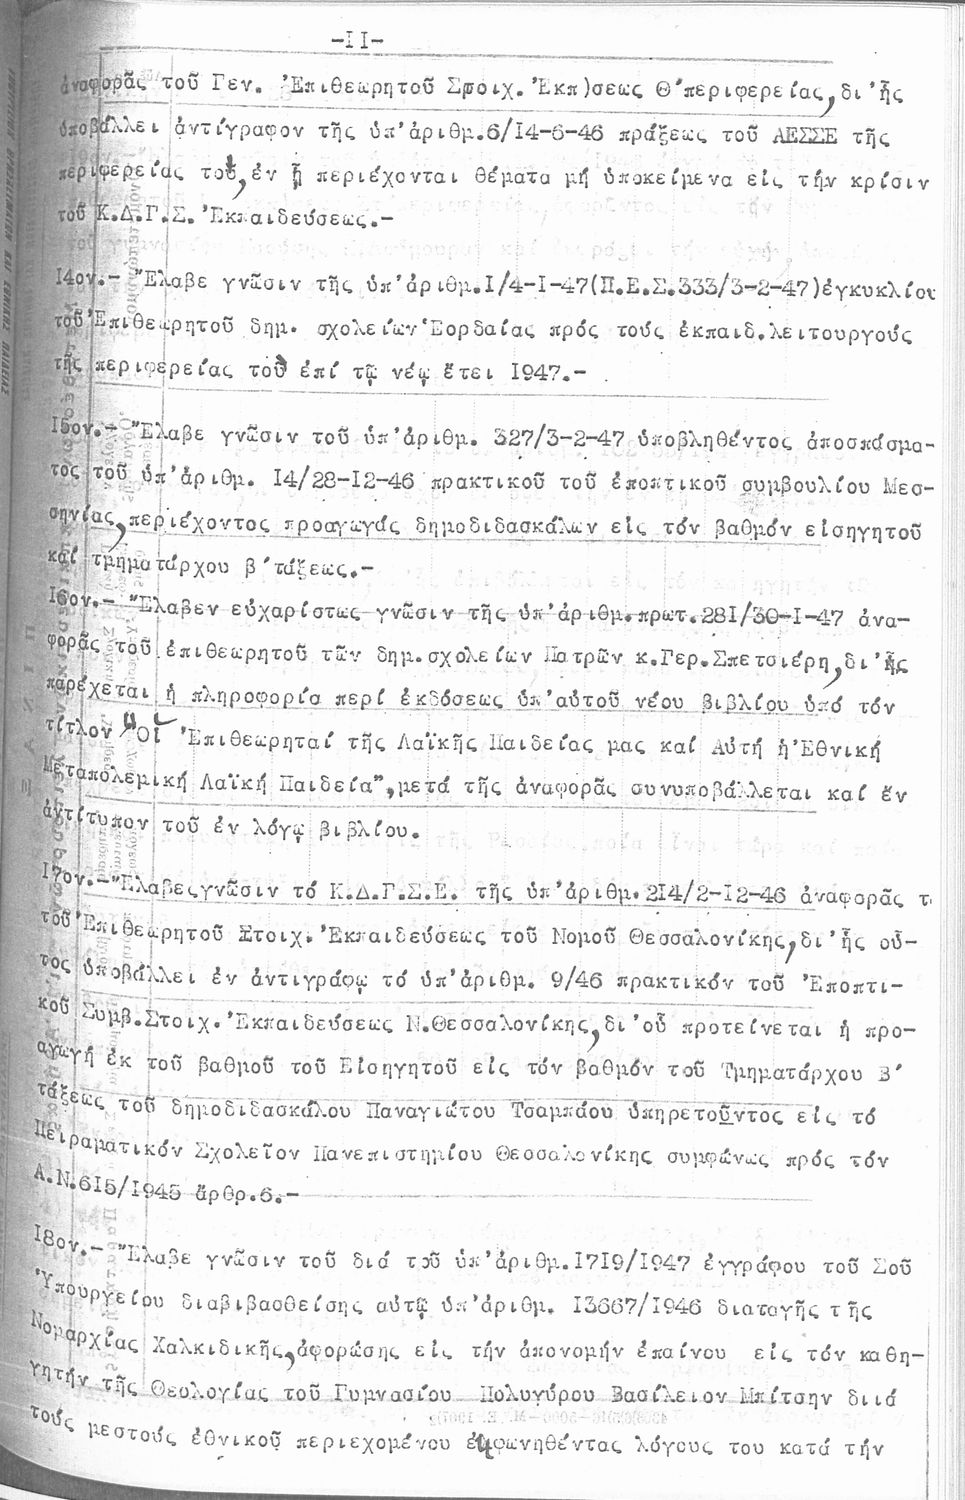 -II-
ἀναφορᾶς τοῦ Γεν. Ἐπιθεωρητοῦ Στοιχ. Ἐκπ)σεως Θ΄περιφερείας, δι᾽ἧς
ὑποβάλλει ἀντίγραφον τῆς ὑπ᾽ἀριθμ.6/I4-6-46 πράξεως τοῦ ΑΕΣΣΕ τῆς
περιφερείας του, ἐν ᾗ περιέχονται θέματα μή ὑποκείμενα εἰς τήν κρίσιν
τοῦ Κ.Δ.Γ.Σ. Ἐκπαιδεύσεως.-
I4ον.- Ἔλαβε γνῶσιν τῆς ὑπ᾽ἀριθμ.I/4-I-47(Π.Ε.Σ.333/3-2-47)ἐγκυκλίου
τοῦ Ἐπιθεωρητοῦ δημ. σχολείων Ἑορδαίας πρός τούς ἐκπαιδ.λειτουργούς
τῆς περιφερείας του ἐπί τῷ νέῳ ἔτει I947.-
I5ον.- Ἔλαβε γνῶσιν τοῦ ὑπ᾽ἀριθμ. 327/3-2-47 ὑποβληθέντος ἀποσπάσμα-
τος τοῦ ὑπ᾽ἀριθμ. I4/28-I2-46 πρακτικοῦ τοῦ ἐποπτικοῦ συμβουλίου Μεσ-
σηνίας, περιέχοντος προαγωγάς δημοδιδασκάλων εἰς τόν βαθμόν εἰσηγητοῦ
καί τμηματάρχου β΄τάξεως.-
I6ον.- Ἔλαβεν εὐχαρίστως γνῶσιν τῆς ὑπ᾽ἀριθμ.πρωτ.28I/30-I-47 ἀνα-
φορᾶς τοῦ ἐπιθεωρητοῦ τῶν δημ.σχολείων Πατρῶν κ.Γερ.Σπετσιέρη, δι᾽ἧς
παρέχεται ἡ πληροφορία περί ἐκδόσεως ὑπ᾽αὐτοῦ νέου βιβλίου ὑπό τόν
τίτλον "Οἱ Ἐπιθεωρηταί τῆς Λαϊκῆς Παιδείας μας καί Αὐτή ἡ Ἐθνική
Μεταπολεμική Λαϊκή Παιδεία", μετά τῆς ἀναφορᾶς συνυποβάλλεται καί ἕν
ἀντίτυπον τοῦ ἐν λόγῳ βιβλίου.
I7ον.- Ἔλαβε γνῶσιν τό Κ.Δ.Γ.Σ.Ε. τῆς ὑπ᾽ἀριθμ.2I4/2-I2-46 ἀναφορᾶς τ
τοῦ Ἐπιθεωρητοῦ Στοιχ. Ἐκπαιδεύσεως τοῦ Νομοῦ Θεσσαλονίκης, δι᾽ἧς οὗ-
τος ὑποβάλλει ἐν ἀντιγράφῳ τό ὑπ᾽ἀριθμ. 9/46 πρακτικόν τοῦ Ἐποπτι-
κοῦ Συμβ.Στοιχ. Ἐκπαιδεύσεως Ν.Θεσσαλονίκης, δι᾽οὗ προτείνεται ἡ προ-
αγωγή ἐκ τοῦ βαθμοῦ τοῦ Εἰσηγητοῦ εἰς τόν βαθμόν τοῦ Τμηματάρχου Β΄
τάξεως τοῦ δημοδιδασκάλου Παναγιώτου Τσαμπάου ὑπηρετοῦντος εἰς τό
Πειραματικόν Σχολεῖον Πανεπιστημίου Θεσσαλονίκης συμφώνως πρός τόν
Α.Ν.6I5/I945 ἄρθρ.6.-
I8ον.- Ἔλαβε γνῶσιν τοῦ διά τοῦ ὑπ᾽ἀριθμ.I7I9/I947 ἐγγράφου τοῦ Σοῦ
Ὑπουργείου διαβιβασθείσης αὐτῷ ὑπ᾽ἀριθμ. I3667/I946 διαταγῆς τῆς
Νομαρχίας Χαλκιδικῆς, ἀφορώσης εἰς τήν ἀπονομήν ἐπαίνου εἰς τόν καθη-
γητήν τῆς Θεολογίας τοῦ Γυμνασίου Πολυγύρου Βασίλειον Μπίτσην διά
τούς μεστούς ἐθνικοῦ περιεχομένου ἐκφωνηθέντας λόγους του κατά τήν